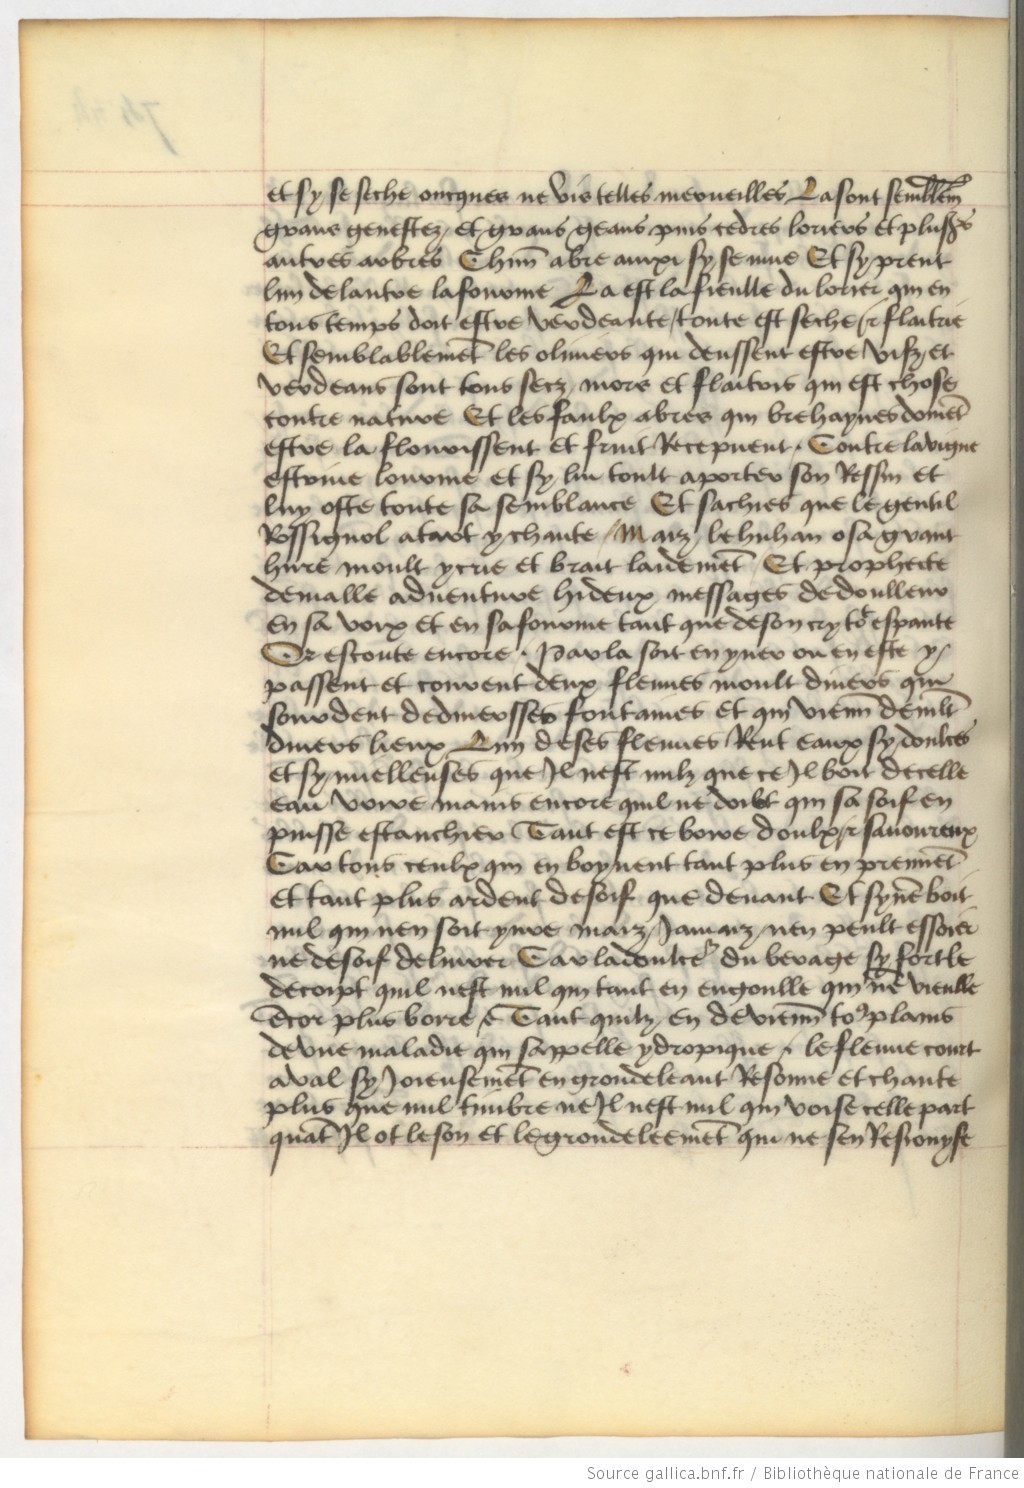 et sy se seche oncques ne vis telles merveilles La sont semblem̄
grans genestez et grans geans pins cedres loriers et pluss̄
autres arbres Chun̄ abre auxi sy se mue Et sy prent
lun de lautre la fourme La est la fieulle du lorier qui en
tous temps doit estre verdeante / toute est seche et flaitrie
Et semblablemēt les oliviers qui deussent estre vifz et
verdeans sont tous secz mors et flaitris qui est chose
contre nature Et les faulx abres qui brehaynes doivēt
estre la flourissent et fruit Recepvent . Contre la vigne
estrive lourme et sy lui toult aporter son Ressin et
luy oste toute sa semblance Et sachies que le gentil
Rossignol a tart y chante / Maiz le huhan o sa grant
hure moult y crie et brait laidemēt Et prophecte
de malle adventure hideux messages de doulleur
en sa voix et en sa fourme tant que de son cry to9 espante
Or escoute encore . Par la soit en yver ou en este y
passent et courent deux fleuves moult divers qui
sourdent de diversses fontaines et qui vienn̄ de mlt̄
divers lieux Lun de ses fleuves Rent eaux sy doulces
et sy mielleuses que Il nest nulz que ce Il boit de celle
eau voire mains encore quil ne doibt qui sa soif en
puisse estanchier Tant est ce boire doulx et savoureux
Car tous ceulx qui en boyvent tant plus en prennēt
et tant plus ardent de soif que devant Et sy nē boit
nul qui nen soit yvre maiz Jamaiz nen peult essoier
ne de soif delivrer Car la doulcer du bevage sy fort le
decoipt quil nest nul qui tant en engoulle qui nē vieulle
Ēcor plus boire / Tant quilz en devienn̄ to9 plains
de une maladie qui sappelle ydropique . le fleuve court
aval sy Joieusemēt en grondeleant Resonne et chante
plus que nul timbre ne Il nest nul qui voise celle part
quāt Il ot le son et le grondeleemēt qui ne sen Resiouyse
Source gallica.bnf.fr / Bibliothèque nationale de France